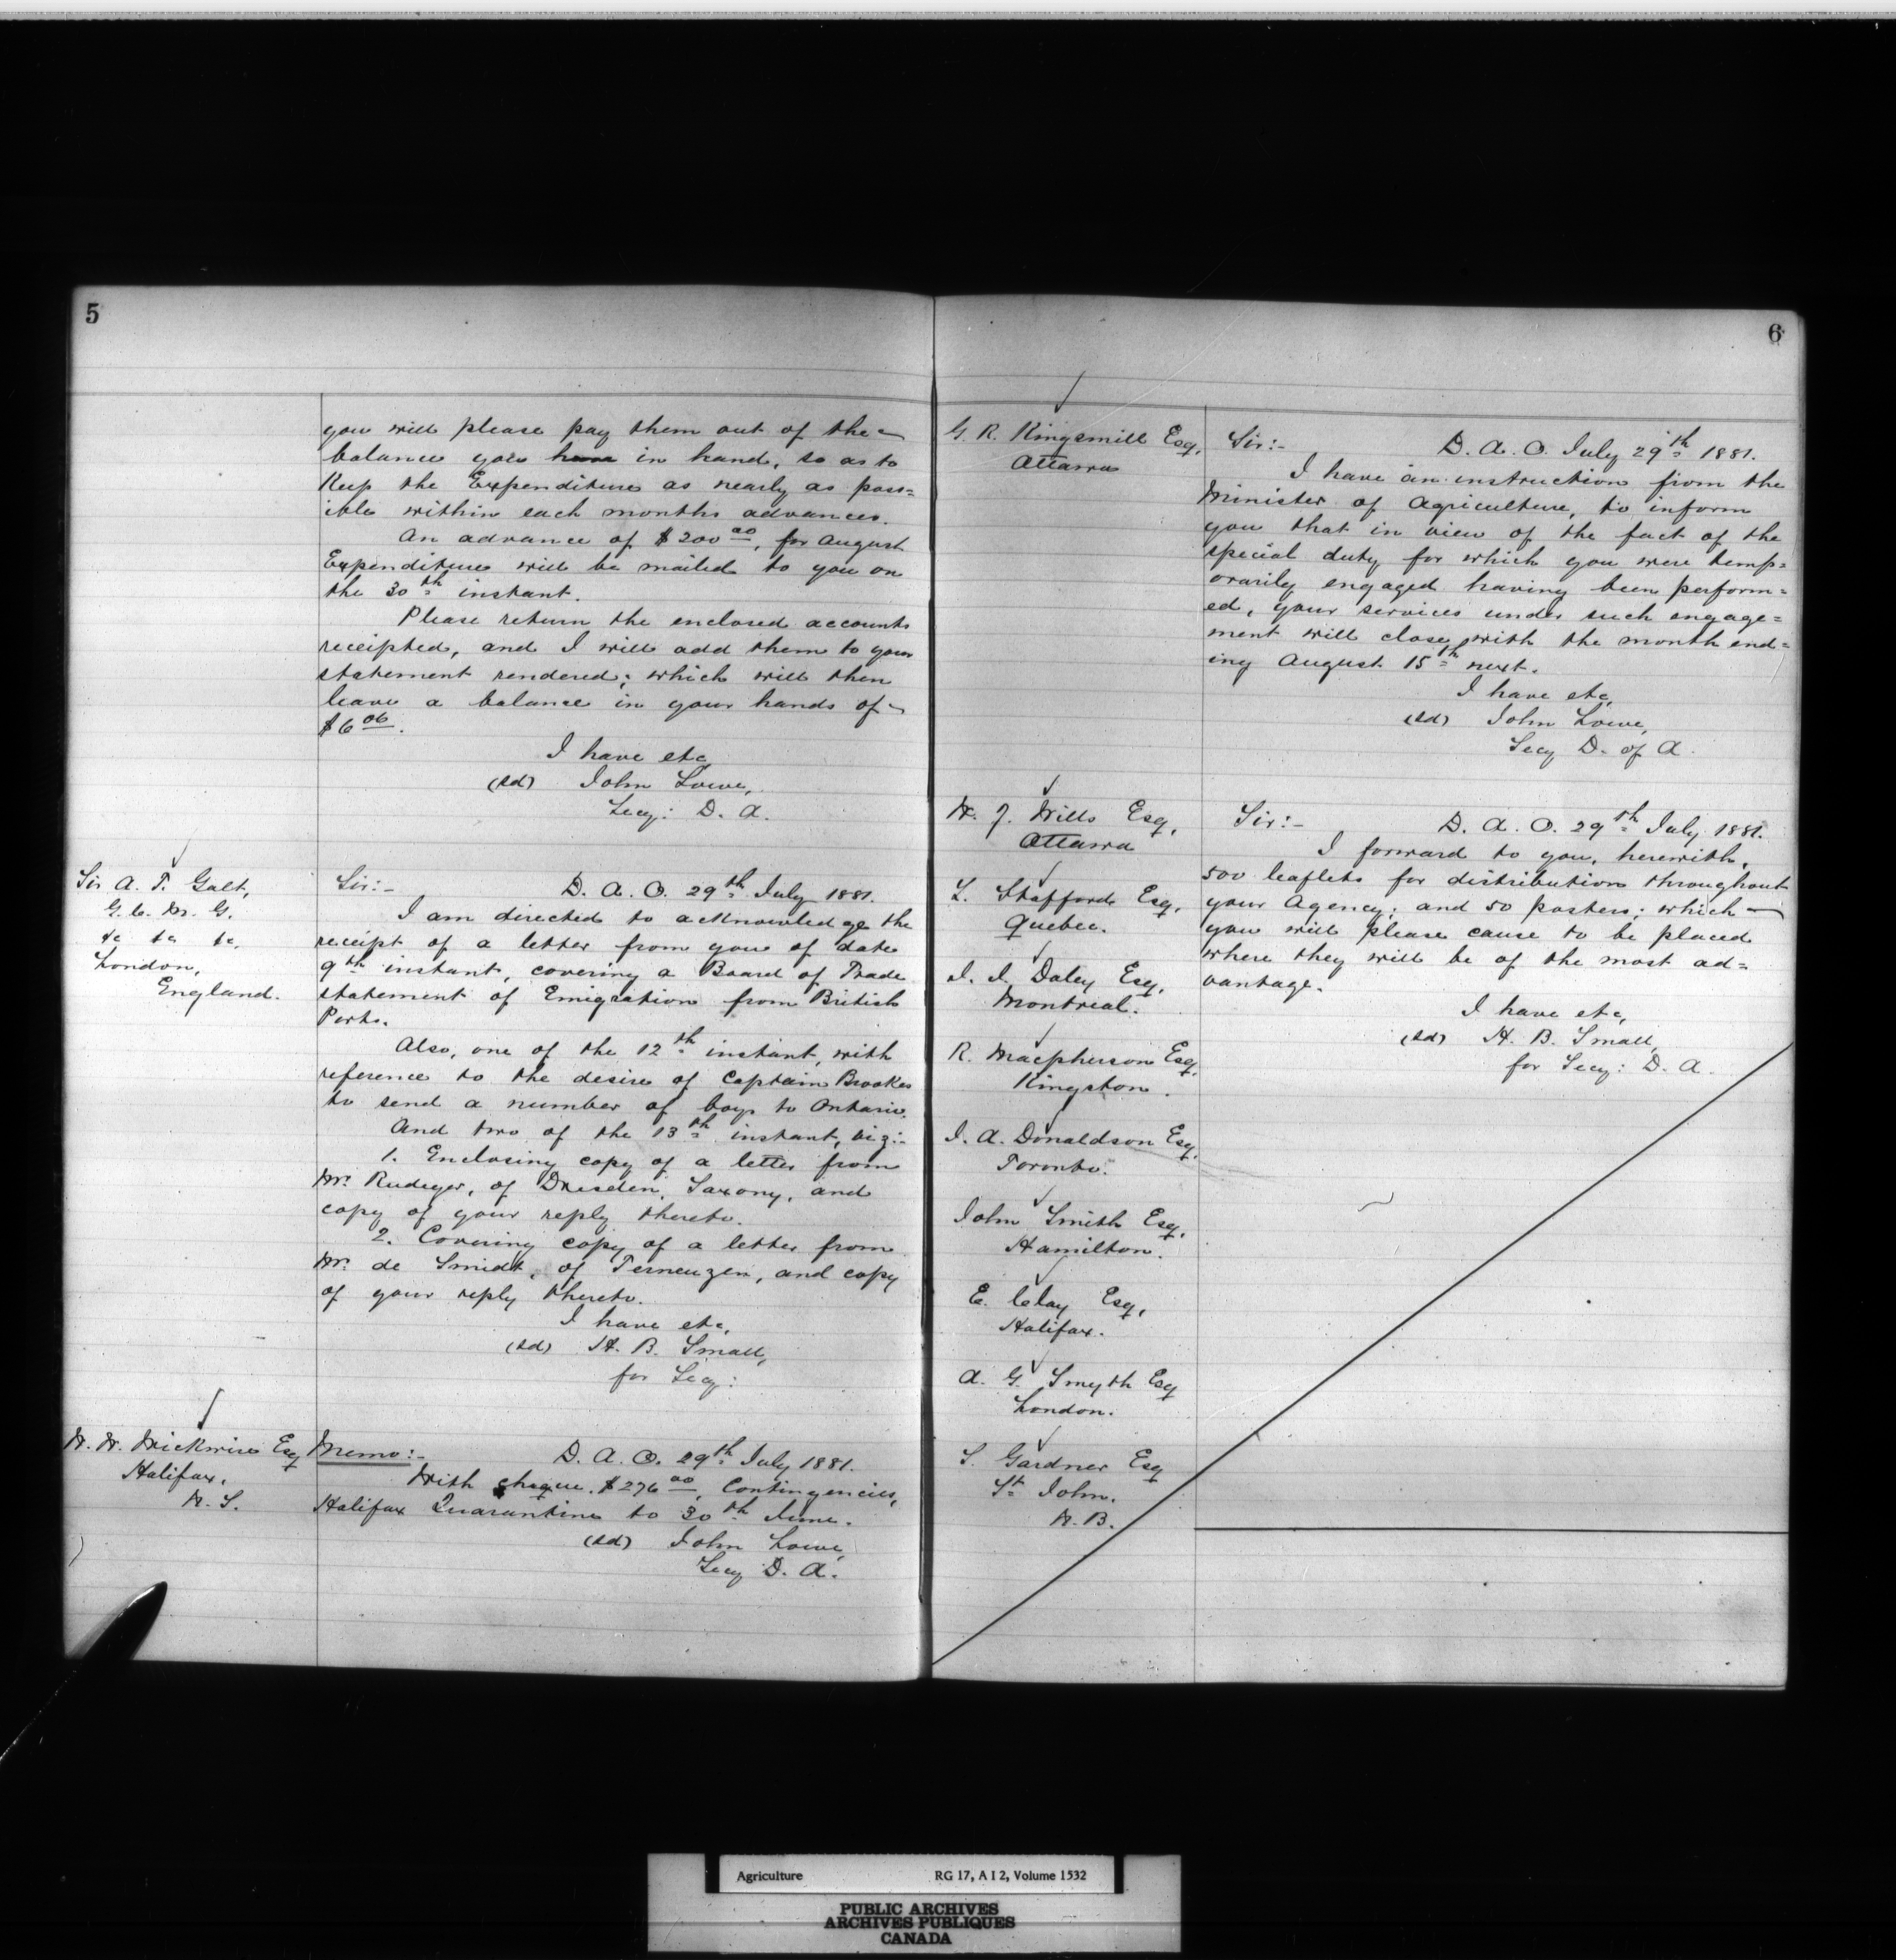 5
you will please pay them out of the
balance you have in hand, so as to
Keep the Expenditure as nearly as poss=
ible within each months advances.
An advance of $200 00, for August
Expenditure will be mailed to you on
the 30th instant.
Please return the enclosed accounts
receipted, and I will add them to your
statement rendered; which will then
leave a balance in your hands of
$6 06.
I have etc,
(sd) John Lowe,
Secy: D. A.
Sir A. T. Galt,
G. C. M. G.
&c &c &c,
London,
England.
Sir:- D. A. O. 29th July 1881.
I am directed to acknowledge the
receipt of a letter from you of date
9th instant, covering a Board of Trade
statement of Emigration from British
Ports.
Also, one of the 12th instant, with
reference to the desire of Captain Brookes
to send a number of boys to Ontario.
And two of the 13th instant, viz:-
1. Enclosing copy of a letter from
Mr. Rudeger, of Dresden, Saxony, and
copy of your reply thereto.
2. Covering copy of a letter from
Mr. de Smidt, of Terneuzen, and copy
of your reply thereto.
I have etc,
(sd) H. B. Small,
for Secy:
W. W. Wickwire Esq
Halifax,
N. S.
Memo:- D. A. O. 29th July 1881.
With cheque. $276 00, Contingencies,
Halifax Quarantine to 30th June.
(sd) John Lowe,
Secy D. A.
6
G. R. Kingsmill Esq,
Ottawa
Sir:- D. A. O. July 29th 1881.
I have an instruction from the
Minister of Agriculture, to inform
you that in view of the fact of the
special duty for which you were temp=
orarily engaged having been perform=
ed, your services under such engage=
ment will close with the month end=
ing August 15th next.
I have etc,
(sd) John Lowe,
Secy D. of A.
W. J. Wills Esq,
Ottawa
L. Stafford Esq,
Quebec.
J. J. Daley Esq,
Montreal.
R. Macpherson Esq,
Kingston.
J. A. Donaldson Esq,
Toronto.
John Smith Esq,
Hamilton.
E. Clay Esq,
Halifax.
A. G. Smyth Esq
London.
S. Gardner Esq
St John.
N. B.
Sir:- D. A. O. 29th July 1881.
I forward to you, herewith,
500 leaflets for distribution throughout
your Agency; and 50 posters; which
you will please cause to be placed
where they will be of the most ad=
vantage.
I have etc,
(sd) H. B. Small,
for Secy: D. A.
Agriculture RG 17, A I 2, Volume 1532
PUBLIC ARCHIVES
ARCHIVES PUBLIQUES
CANADA